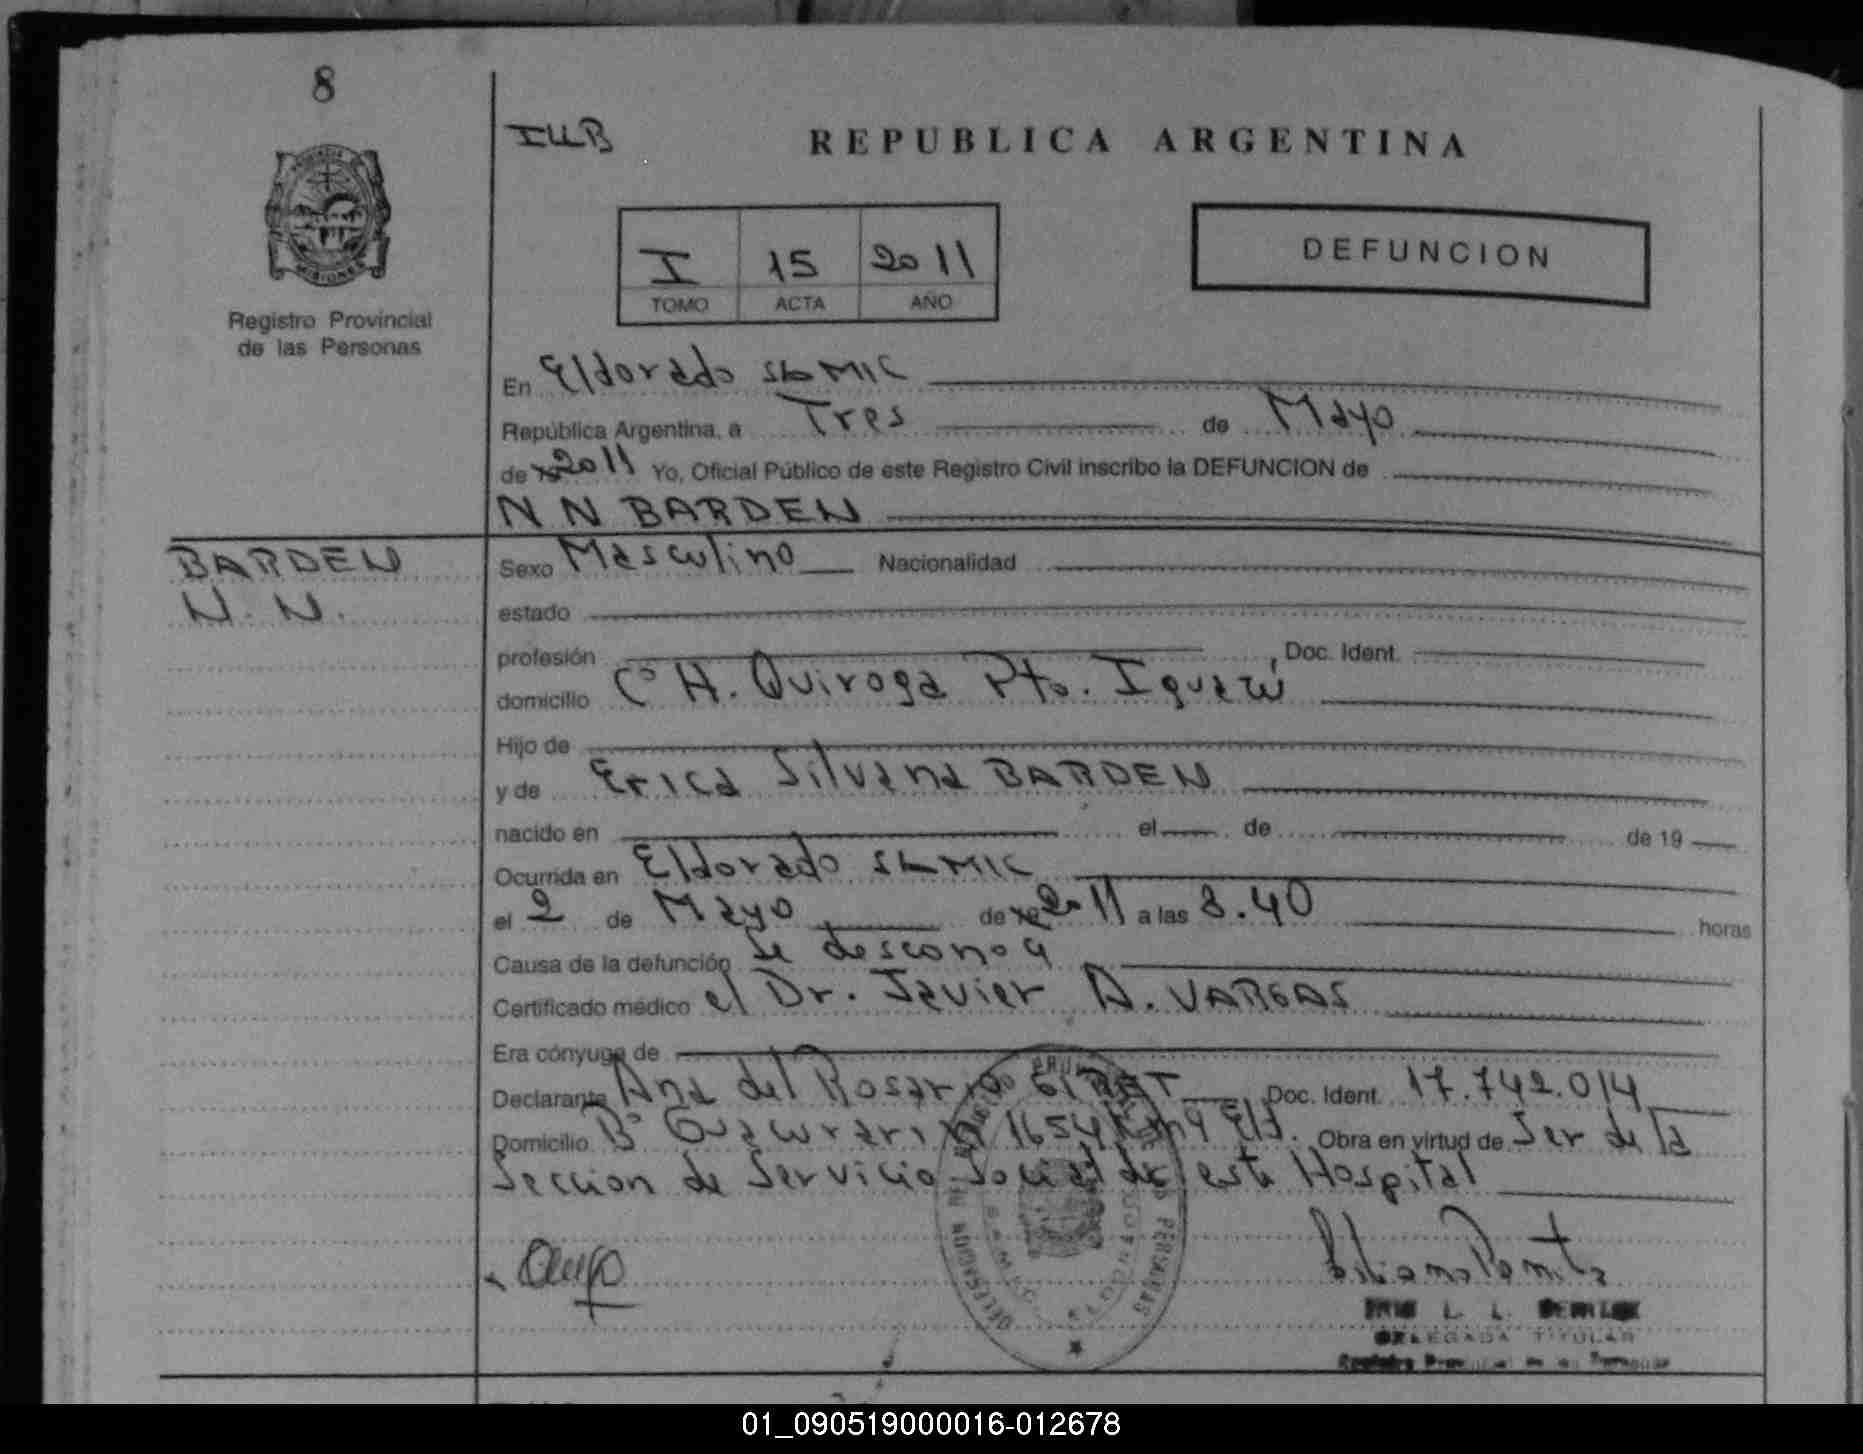 8
ILLB
REPUBLICA ARGENTINA
PROVINCIA DE
MISIONES
Registro Provincial
de las Personas
I 15 2011
TOMO ACTA AÑO
DEFUNCION
En Eldorado SLMIC
República Argentina, a Tres de Mayo
de 2011 Yo, Oficial Público de este Registro Civil inscribo la DEFUNCION de
N N BARDEN
BARDEN
N. N.
Sexo Masculino Nacionalidad
estado
profesión Doc. Ident.
domicilio Cº H. Quiroga Pto. Iguazú
Hijo de
y de Erica Silvana BARDEN
nacido en el de de 19
Ocurrida en Eldorado SLMIC
el 2 de Mayo de 2011 a las 8.40 horas
Causa de la defunción se desconoce
Certificado médico el Dr. Javier A. VARGAS
Era cónyuge de
Declarante Ana del Rosario Doc. Ident. 17.742.014
Domicilio Bº Guacurari 1654 Km 9 Eld. Obra en virtud de Ser de la
Seccion de Servicio Social de este Hospital
DELEGADA TITULAR
Registro Provincial de las Personas
01_090519000016-012678